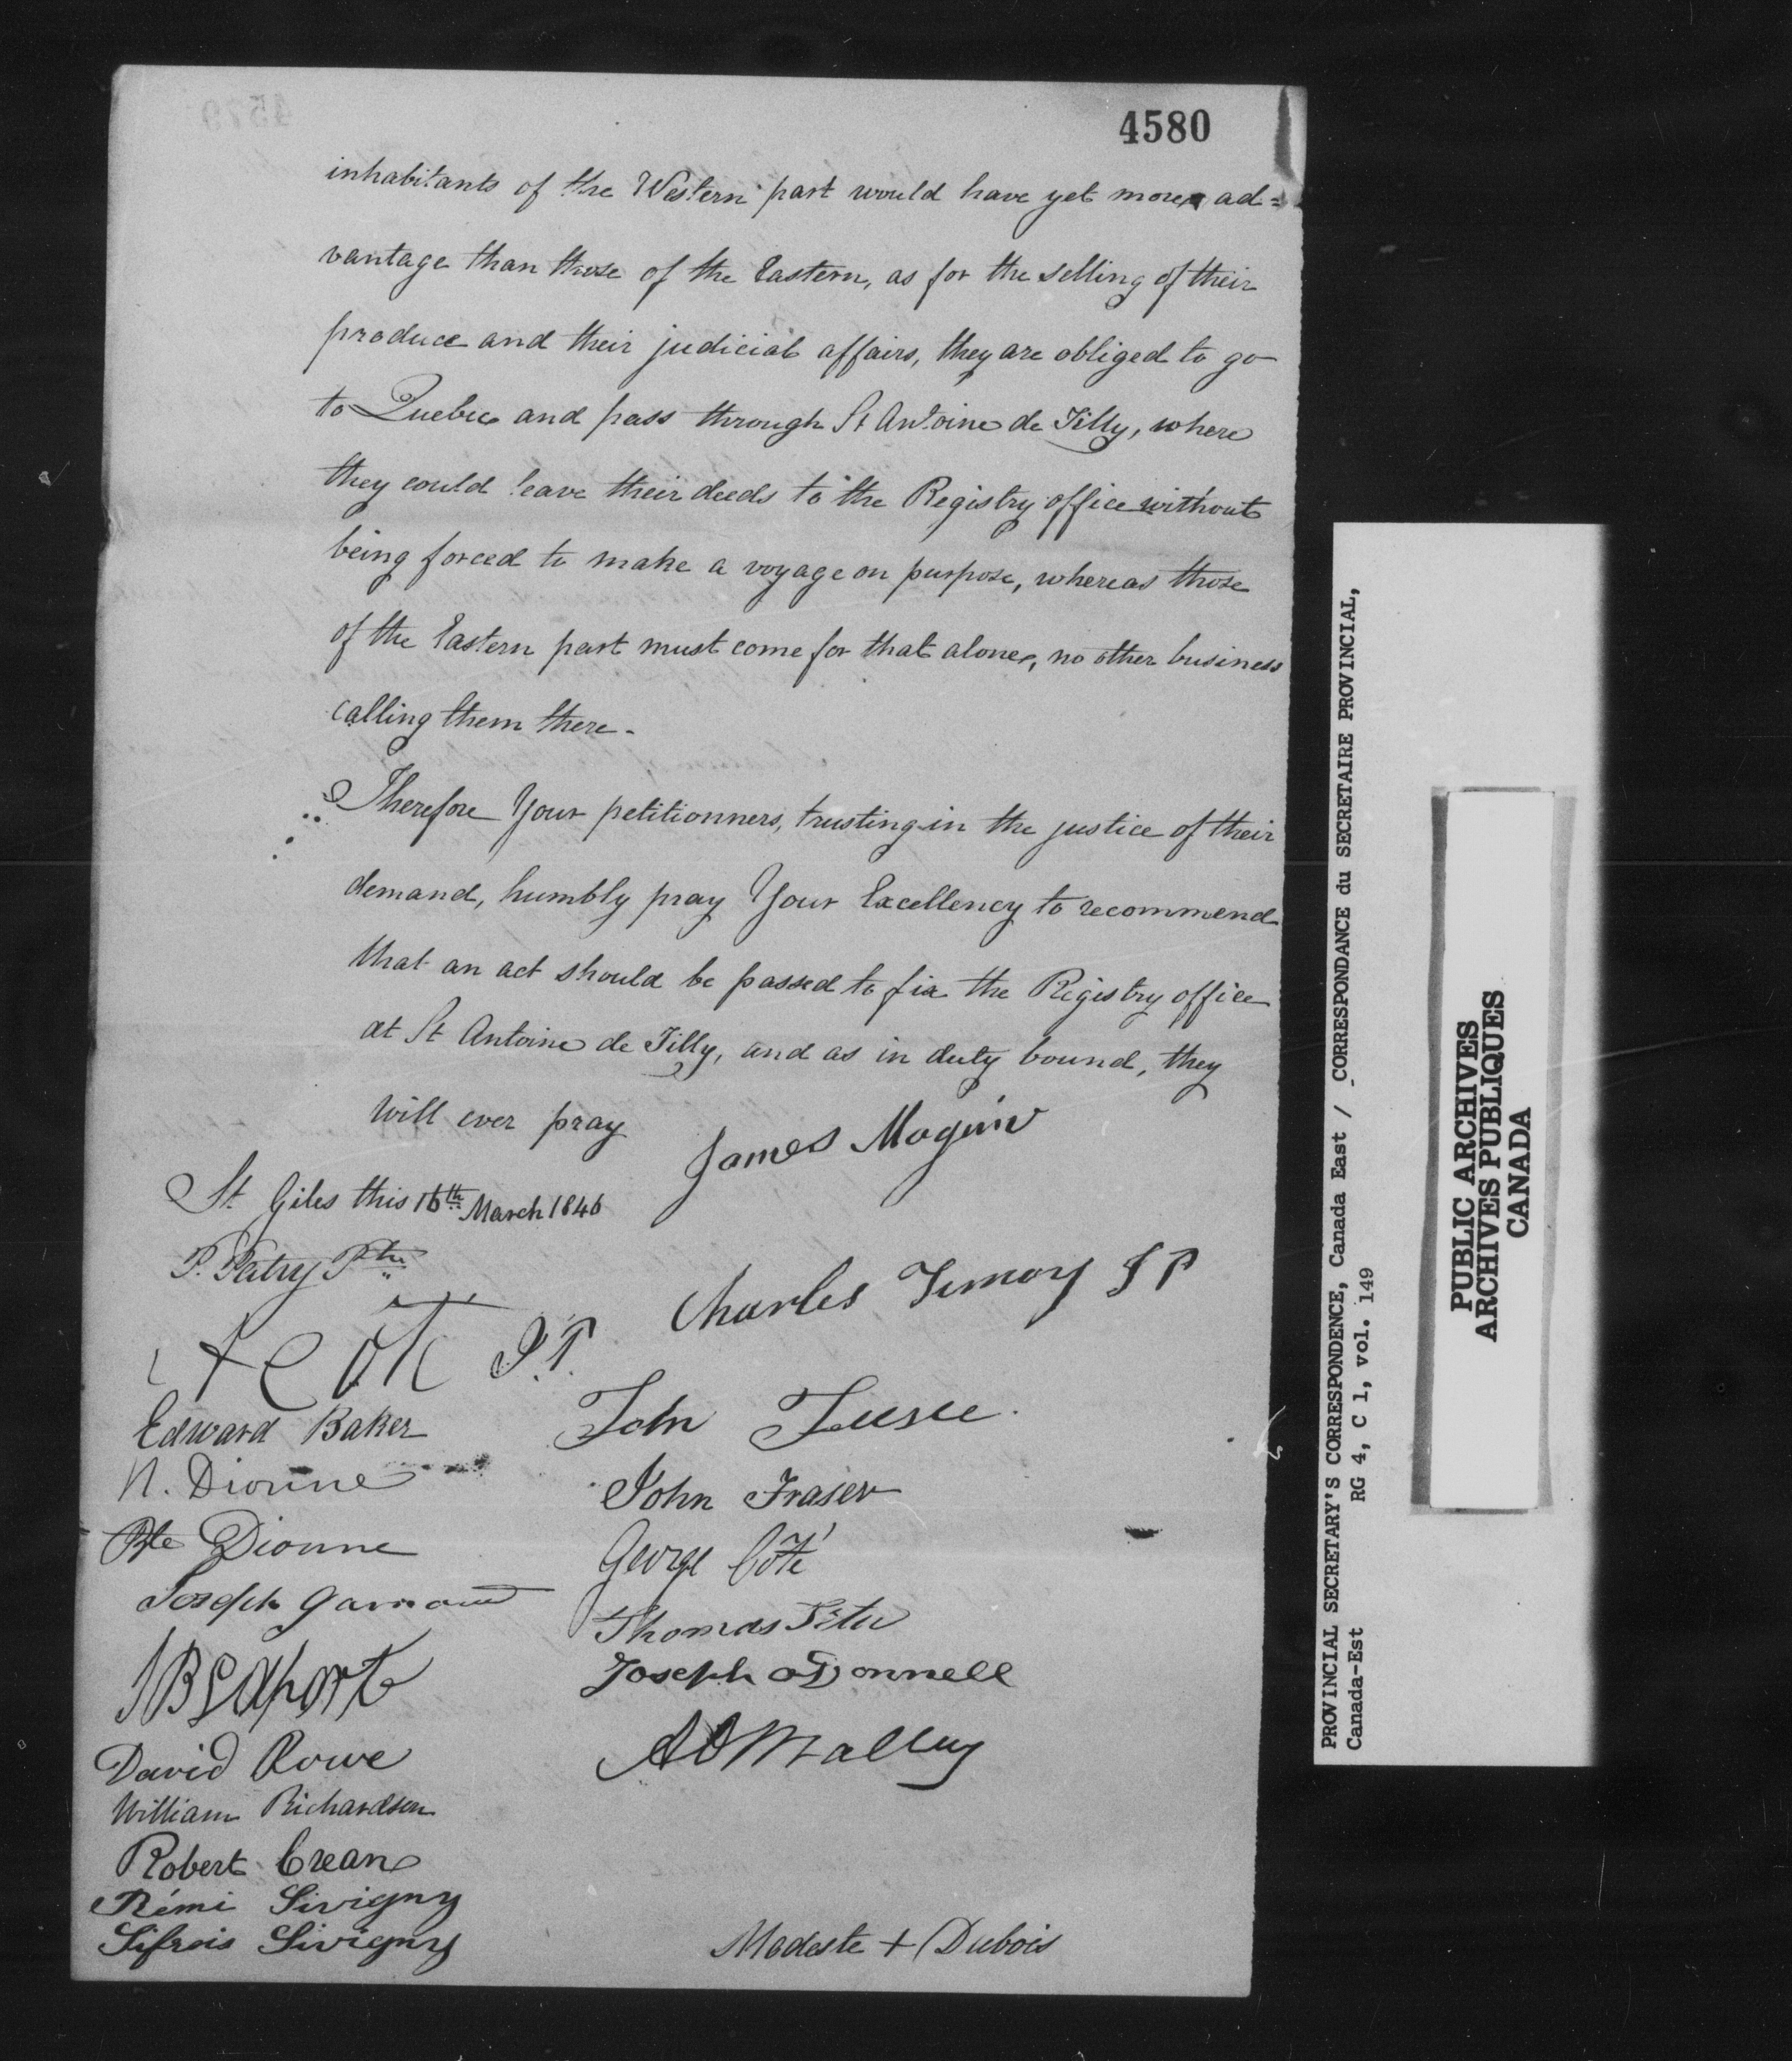 4580
inhabitants of the Western part would have yet more ad=
vantage than those of the Eastern, as for the selling of their
produce and their judicial affairs, they are obliged to go
to Quebec and pass through St Antoine de Tilly, where
they could leave their deeds to the Registry office without
being forced to make a voyage on purpose, whereas those
of the Eastern part must come for that alone, no other business
calling them there.
Therefore Your petitionners, trusting in the justice of their
demand, humbly pray Your Excellency to recommend
that an act should be passed to fix the Registry office
at St Antoine de Tilly, and as in duty bound, they
will ever pray
James Maguir
St Giles this 16th March 1846
P. Patry Ptre
Charles JP
Coté J.P.
Edward Baker
John
N. Dionne
John Fraser
Bte Dionne
George Côté
Joseph
Thomas
JB Laporte
Joseph oDonnell
David Rowe
A OMalley
William Richardson
Robert Crean
Rémi Sivigny
Sifrois Sivigny
Modeste + Dubois
PROVINCIAL SECRETARY'S CORRESPONDENCE, Canada East / CORRESPONDANCE du SECRETAIRE PROVINCIAL,
Canada-Est RG 4, C 1, vol. 149
PUBLIC ARCHIVES
ARCHIVES PUBLIQUES
CANADA